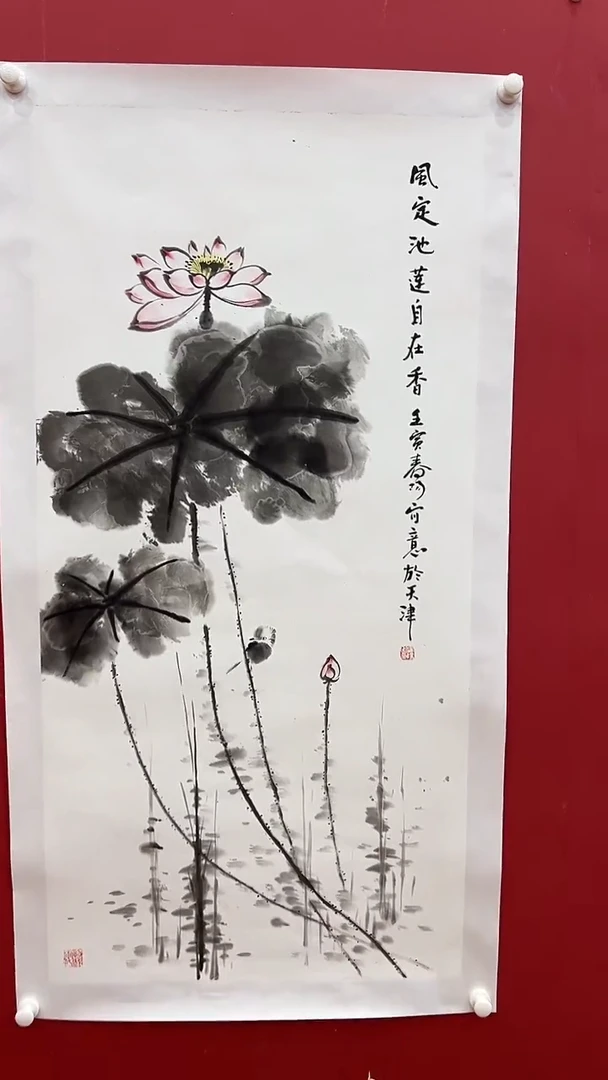 風定池蓮自在香壬寅春河宀意於天津